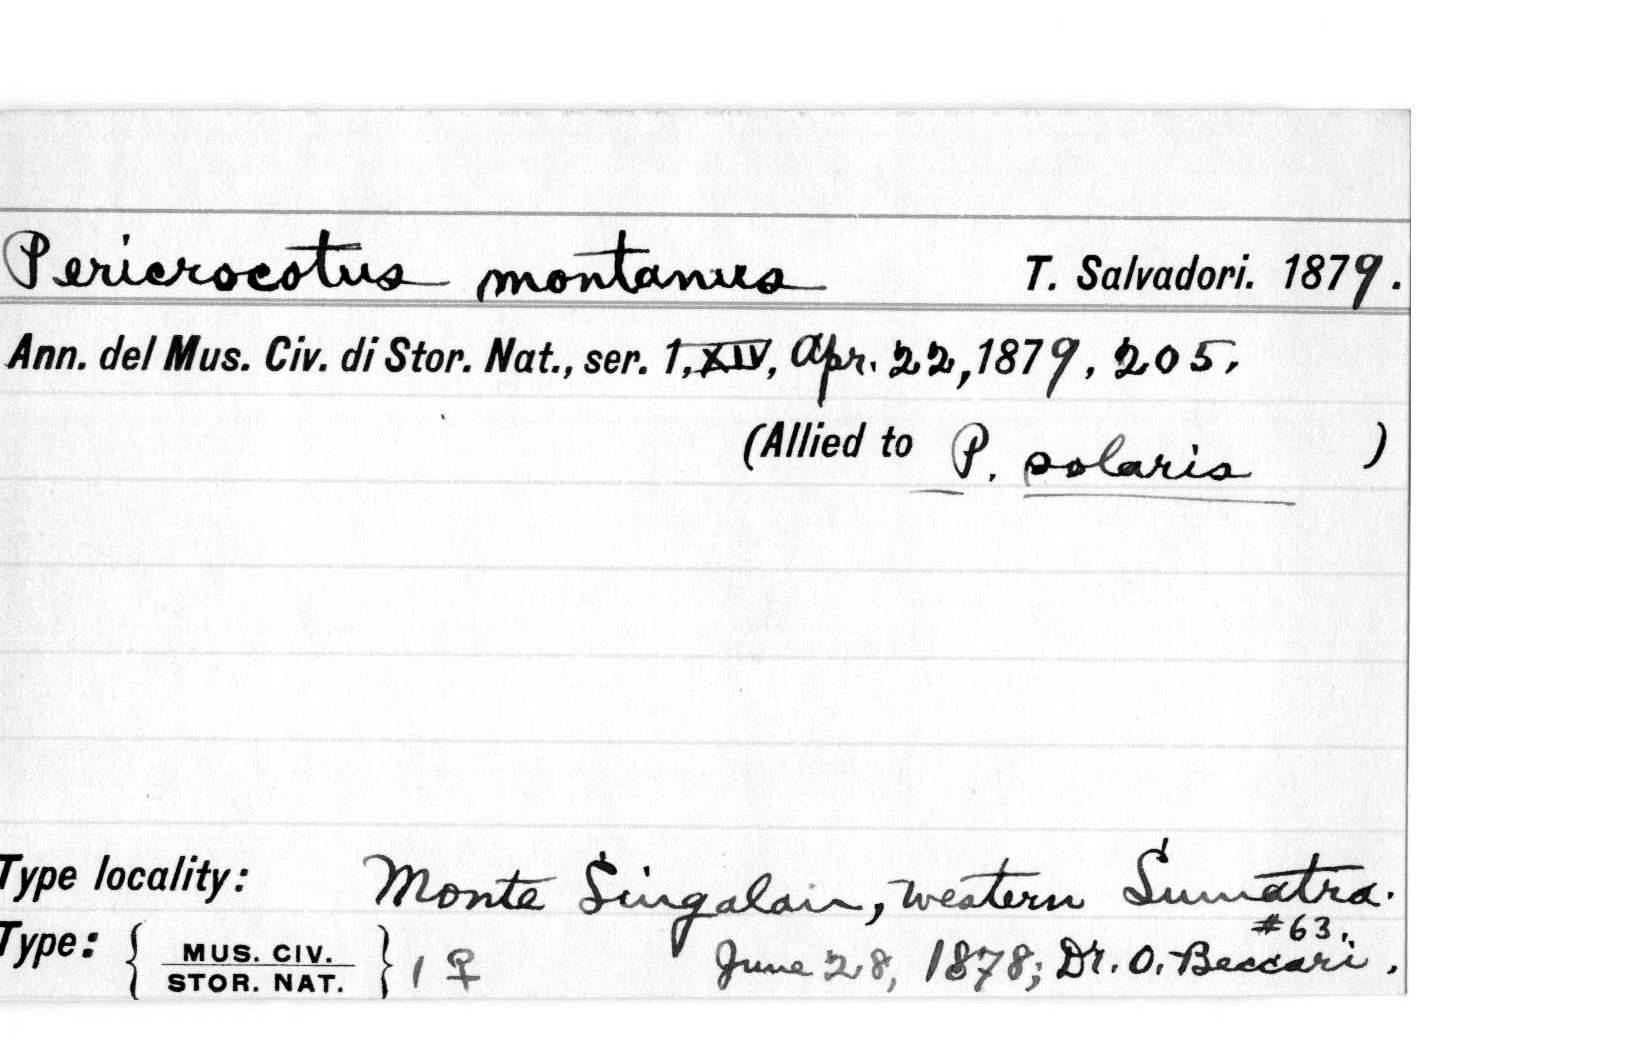 Pericrocotus montanus T. Salvadori. 1879.
Ann. del Mus. Civ. di Stor. Nat., ser. 1, XIV, Apr. 22, 1879, 205.
(Allied to P. solaris )
Type locality: Monte Singalain, western Sumatra.
#63.
Type: { MUS. CIV. STOR. NAT. } 1 ♀ June 28, 1878; Dr. O. Beccari.